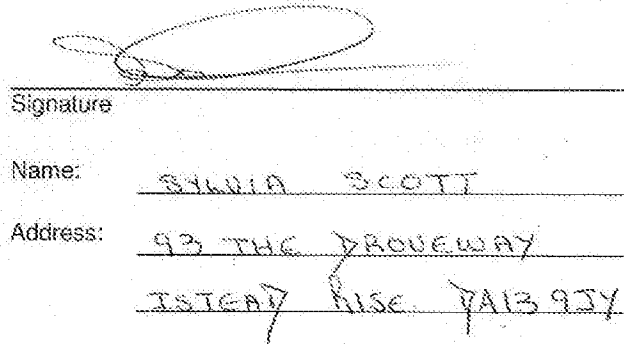 Signature
Name: SYLVIA SCOTT
Address: 93 THE DROVEWAY
ISTEAD RISE. DA13 9JY